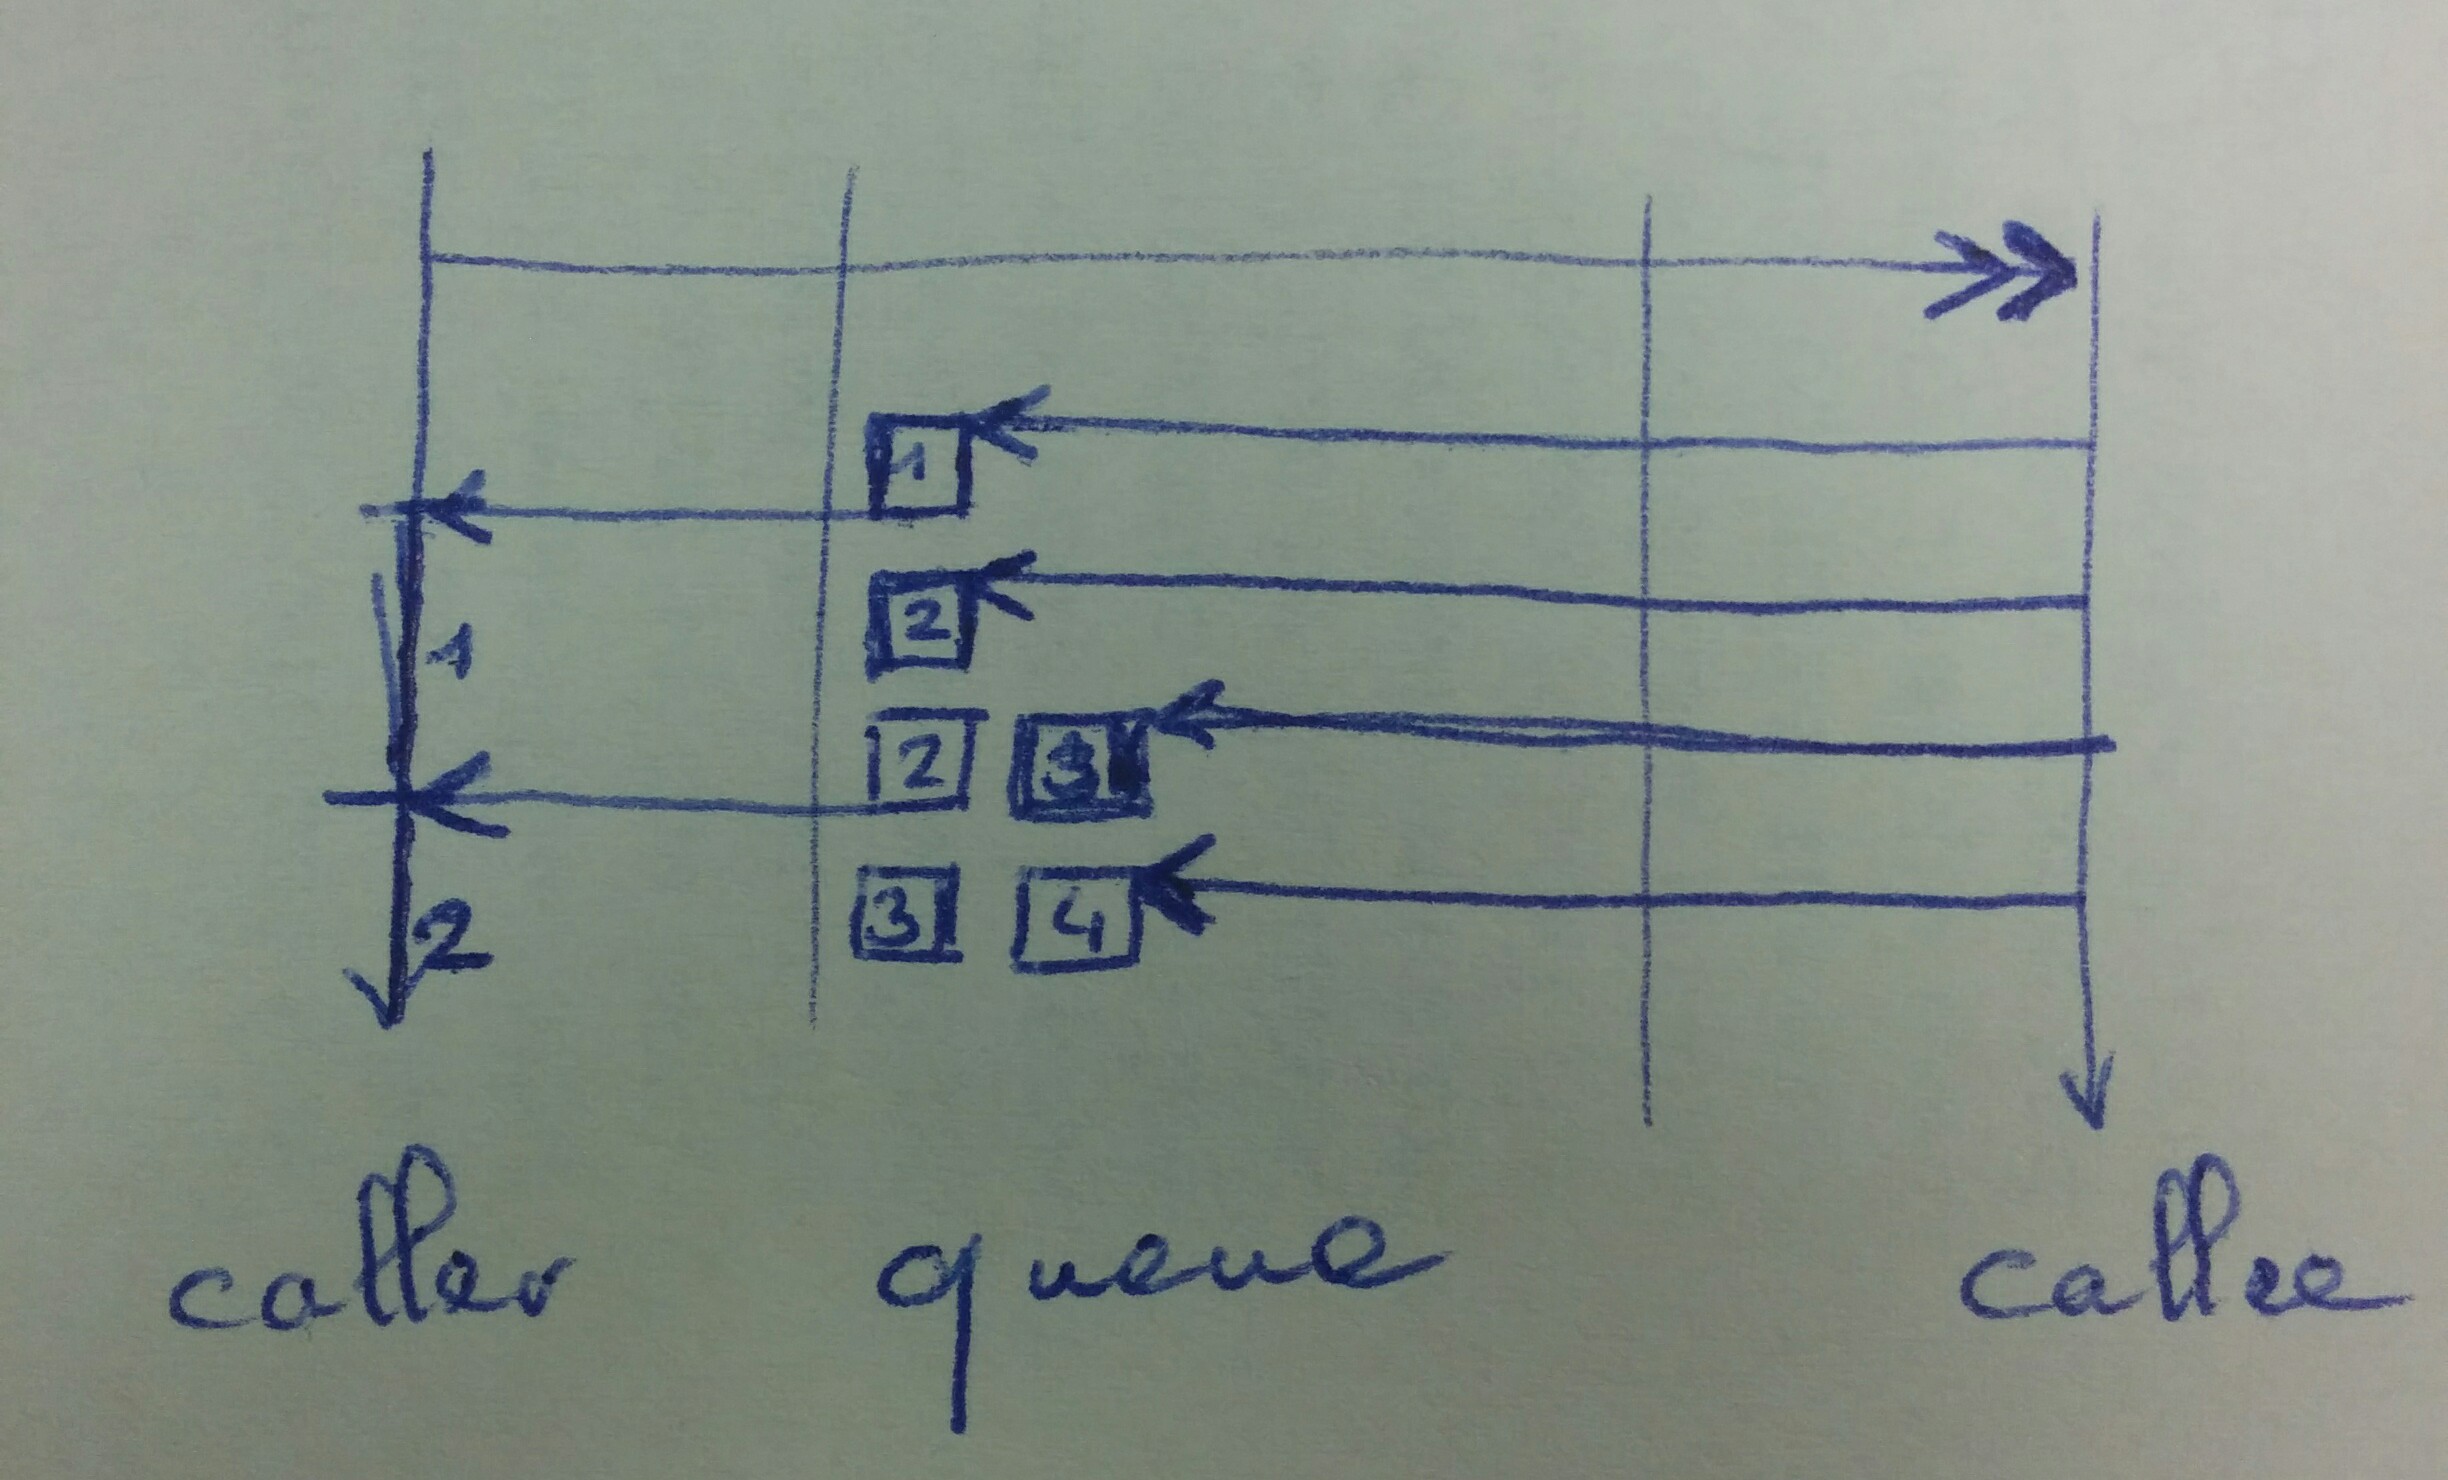 1
2
1
2 3
3 4
2
caller queue callee